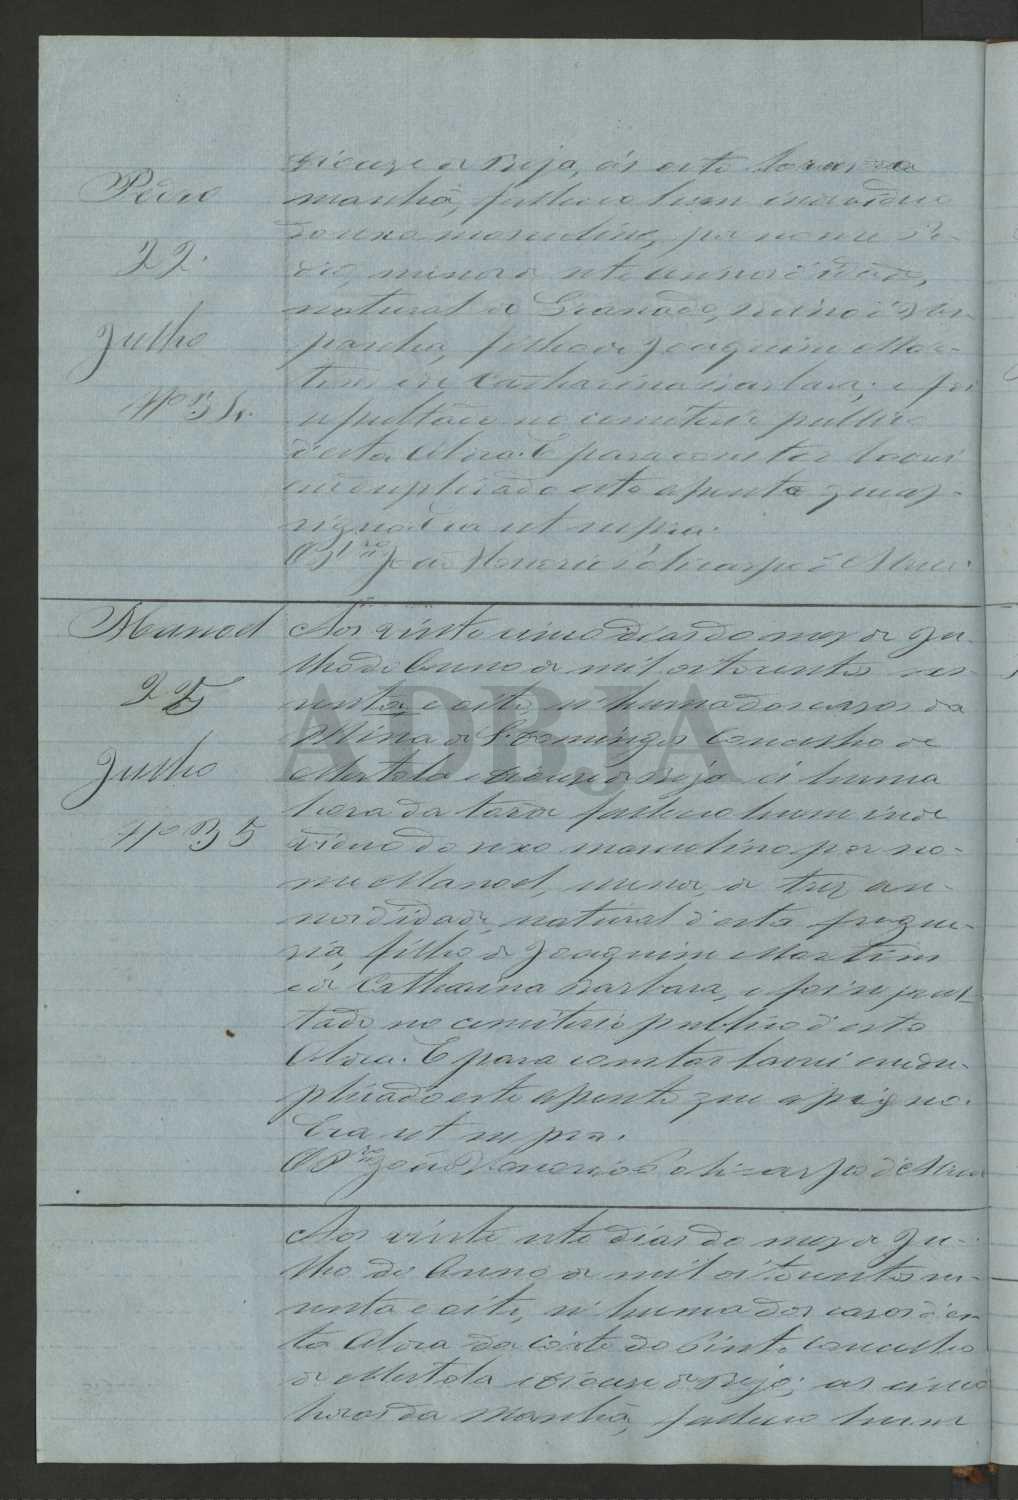 Diouze de Beja, ás oito horas da
manhã, falleceo hum individuo
do sexo masculino, por nome Pe-
dro, menor de sete annos d'idade,
natural de Granado, reino d'Hes-
panha, filho de Joaquim Mar-
tins e de Catharina Barbara; e foi
sepultado no cemiterio publico
d'esta Aldea. E para constar lavrei
em duplicado este assento que as-
signo. Era ut supra.
O P.e João Honorio Polic­arpo d'
Pedro
22
Julho
Nº 34.
Manoel
25
Julho
Nº 35
Aos vinte cinco dias do mez de Ju-
lho do Anno de mil oitocentos ses-
senta e oito, n'huma das casas da
Mina de S. Domingos Concelho de
Mertola e Diouze de Beja á huma
hora da tarde falleceo hum indi
viduo do sexo masculino por no-
me Manoel, menor, de trez an-
nos d'idade, natural d'esta fregue-
sia, filho de Joaquim Martins
e de Catharina Barbara, e foi sepul-
tado no cemiterio publico d'esta
Aldea. E para constar lavrei em du-
plicado este assento que assigno.
Era ut supra.
O P.e João Honorio Policarpo d'
Aos vinte sete dias do mez de Ju-
lho do Anno de mil oitocentos ses-
senta e oito, n'huma das casas d'es-
ta Aldea da Côrte do Pinto Concelho
de Mertola e Diouze de Beja; as cinco
horas da manhã, falleceo hum
ADBJA